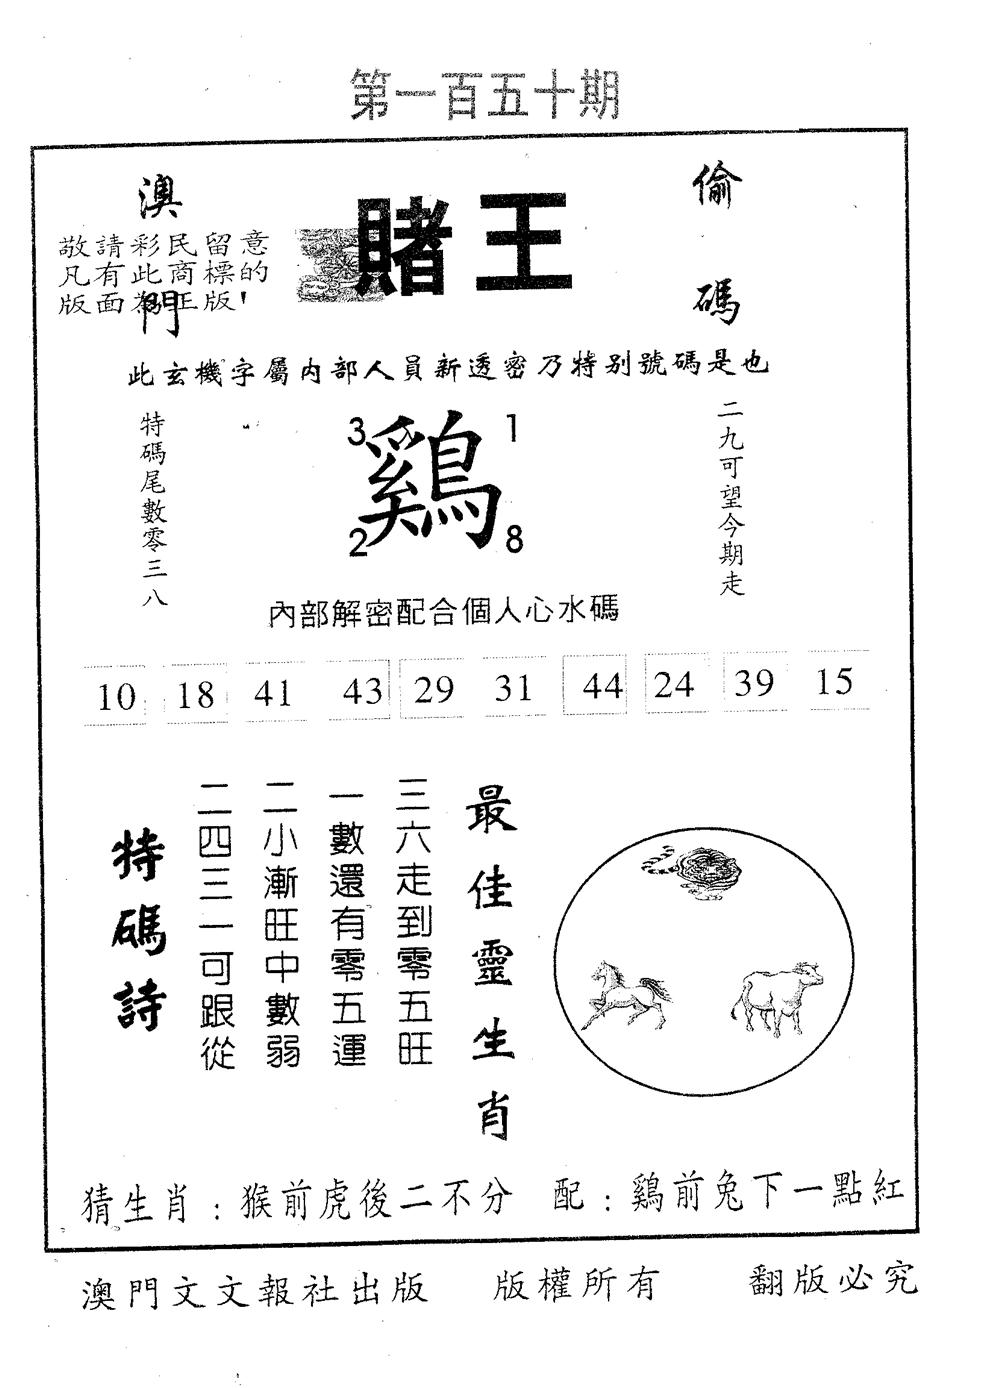 第一百五十期
澳門
賭王
偷碼
敬請彩民留意
凡有此商標的
版面為正版!
此玄機字屬内部人員新透密乃特别號碼是也
特碼尾數零三八
3
1
鷄
2
8
二九可望今期走
內部解密配合個人心水碼
10 18 41 43 29 31 44 24 39 15
最佳靈生肖
三六走到零五旺
一數還有零五運
二小漸旺中數弱
二四三一可跟從
特碼詩
猜生肖：猴前虎後二不分 配：鷄前兔下一點紅
澳門文文報社出版 版權所有 翻版必究